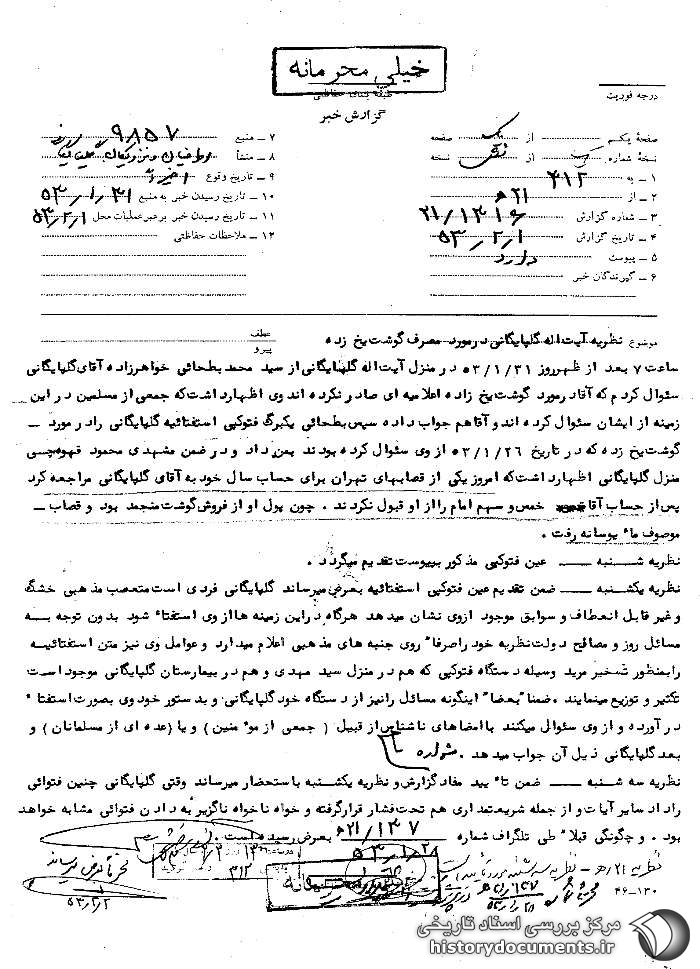 خیلی محرمانه
طبقه بندی حفاظتی
گزارش خبر
درجه فوریت
صفحهٔ یکم از یک صفحه
نسخهٔ شماره از نسخه
۱ ـ به ۳۱۲
۲ ـ از ۲۱ه‍
۳ ـ شماره گزارش ۲۱/۱۳۱۶
۴ ـ تاریخ گزارش ۵۳/۲/۱
۵ ـ پیوست دارد
۶ ـ گیرندگان خبر
۷ ـ منبع ۹۸۵۷
۸ ـ منشأ
۹ ـ تاریخ وقوع اخیرا
۱۰ ـ تاریخ رسیدن خبر به منبع ۵۳/۱/۳۱
۱۱ ـ تاریخ رسیدن خبر برهبر عملیات محل ۵۳/۲/۱
۱۲ ـ ملاحظات حفاظتی
موضوع نظریه آیت اله گلپایگانی درمورد مصرف گوشت یخ زده
عطف
پیرو
ساعت ۷ بعد از ظهر روز ۵۳/۱/۳۱ در منزل آیت اله گلپایگانی از سید محمد بطحائی خواهرزاده آقای گلپایگانی
سئوال کردم که آقا درمورد گوشت یخ زاده اعلامیه ای صادر نکرده اند وی اظهارداشت که جمعی از مسلمین در این
زمینه از ایشان سئوال کرده اند و آقا هم جواب داده سپس بطحائی یکبرگ فتوکپی استفتائیه گلپایگانی را درمورد ـ
گوشت یخ زده که در تاریخ ۵۳/۱/۲۶ از وی سئوال کرده بودند بمن داد و در ضمن مشهدی محمود قهوه چی
منزل گلپایگانی اظهارداشت که امروز یکی از قصابهای تهران برای حساب سال خود به آقای گلپایگانی مراجعه کرد
پس از حساب آقا خمس و سهم امام را از او قبول نکردند . چون پول او از فروش گوشت منجمد بود و قصاب ـ
موصوف مأیوسانه رفت .
نظریه شنبه ـ عین فتوکپی مذکور بپیوست تقدیم میگردد .
نظریه یکشنبه ـ ضمن تقدیم عین فتوکپی استفتائیه بعرض میرساند گلپایگانی فردی است متعصب مذهبی خشک
و غیر قابل انعطاف و سوابق موجود ازوی نشان میدهد هرگاه در این زمینه ها از وی استفتاء شود بدون توجه به
مسائل روز و مصالح دولت نظریه خود را صرفاً روی جنبه های مذهبی اعلام میدارد و عوامل وی نیز متن استفتائیه
را بمنظور تسخیر مرید وسیله دستگاه فتوکپی که هم در منزل سید مهدی و هم در بیمارستان گلپایگانی موجود است
تکثیر و توزیع مینمایند . ضمناً بعضاً اینگونه مسائل را نیز از دستگاه خود گلپایگانی و بدستور خود وی بصورت استفتاء
در آورده و از وی سئوال میکنند با امضاهای ناشناس از قبیل ( جمعی از مؤمنین ) و یا (عده ای از مسلمانان ) و
بعد گلپایگانی ذیل آن جواب میدهد .
نظریه سه شنبه ـ ضمن تأیید مفاد گزارش و نظریه یکشنبه با ستحضار میرساند وقتی گلپایگانی چنین فتوائی
را داد سایر آیات و از جمله شریعتمداری هم تحت فشار قرار گرفته و خواه ناخواه ناگزیر به دادن فتوائی مشابه خواهد
بود . و چگونگی قبلاً طی تلگراف شماره ۲۱/۱۳۷ه‍ بعرض رسیده است .
۵۳/۱/۲۸
نظریه ۲۱ه‍ ـ نظریه سه شنبه مورد تأیید است
۴۶-۱۳۰
۵۳/۲/۲
خیلی محرمانه
مرکز بررسی اسناد تاریخی
historydocuments.ir